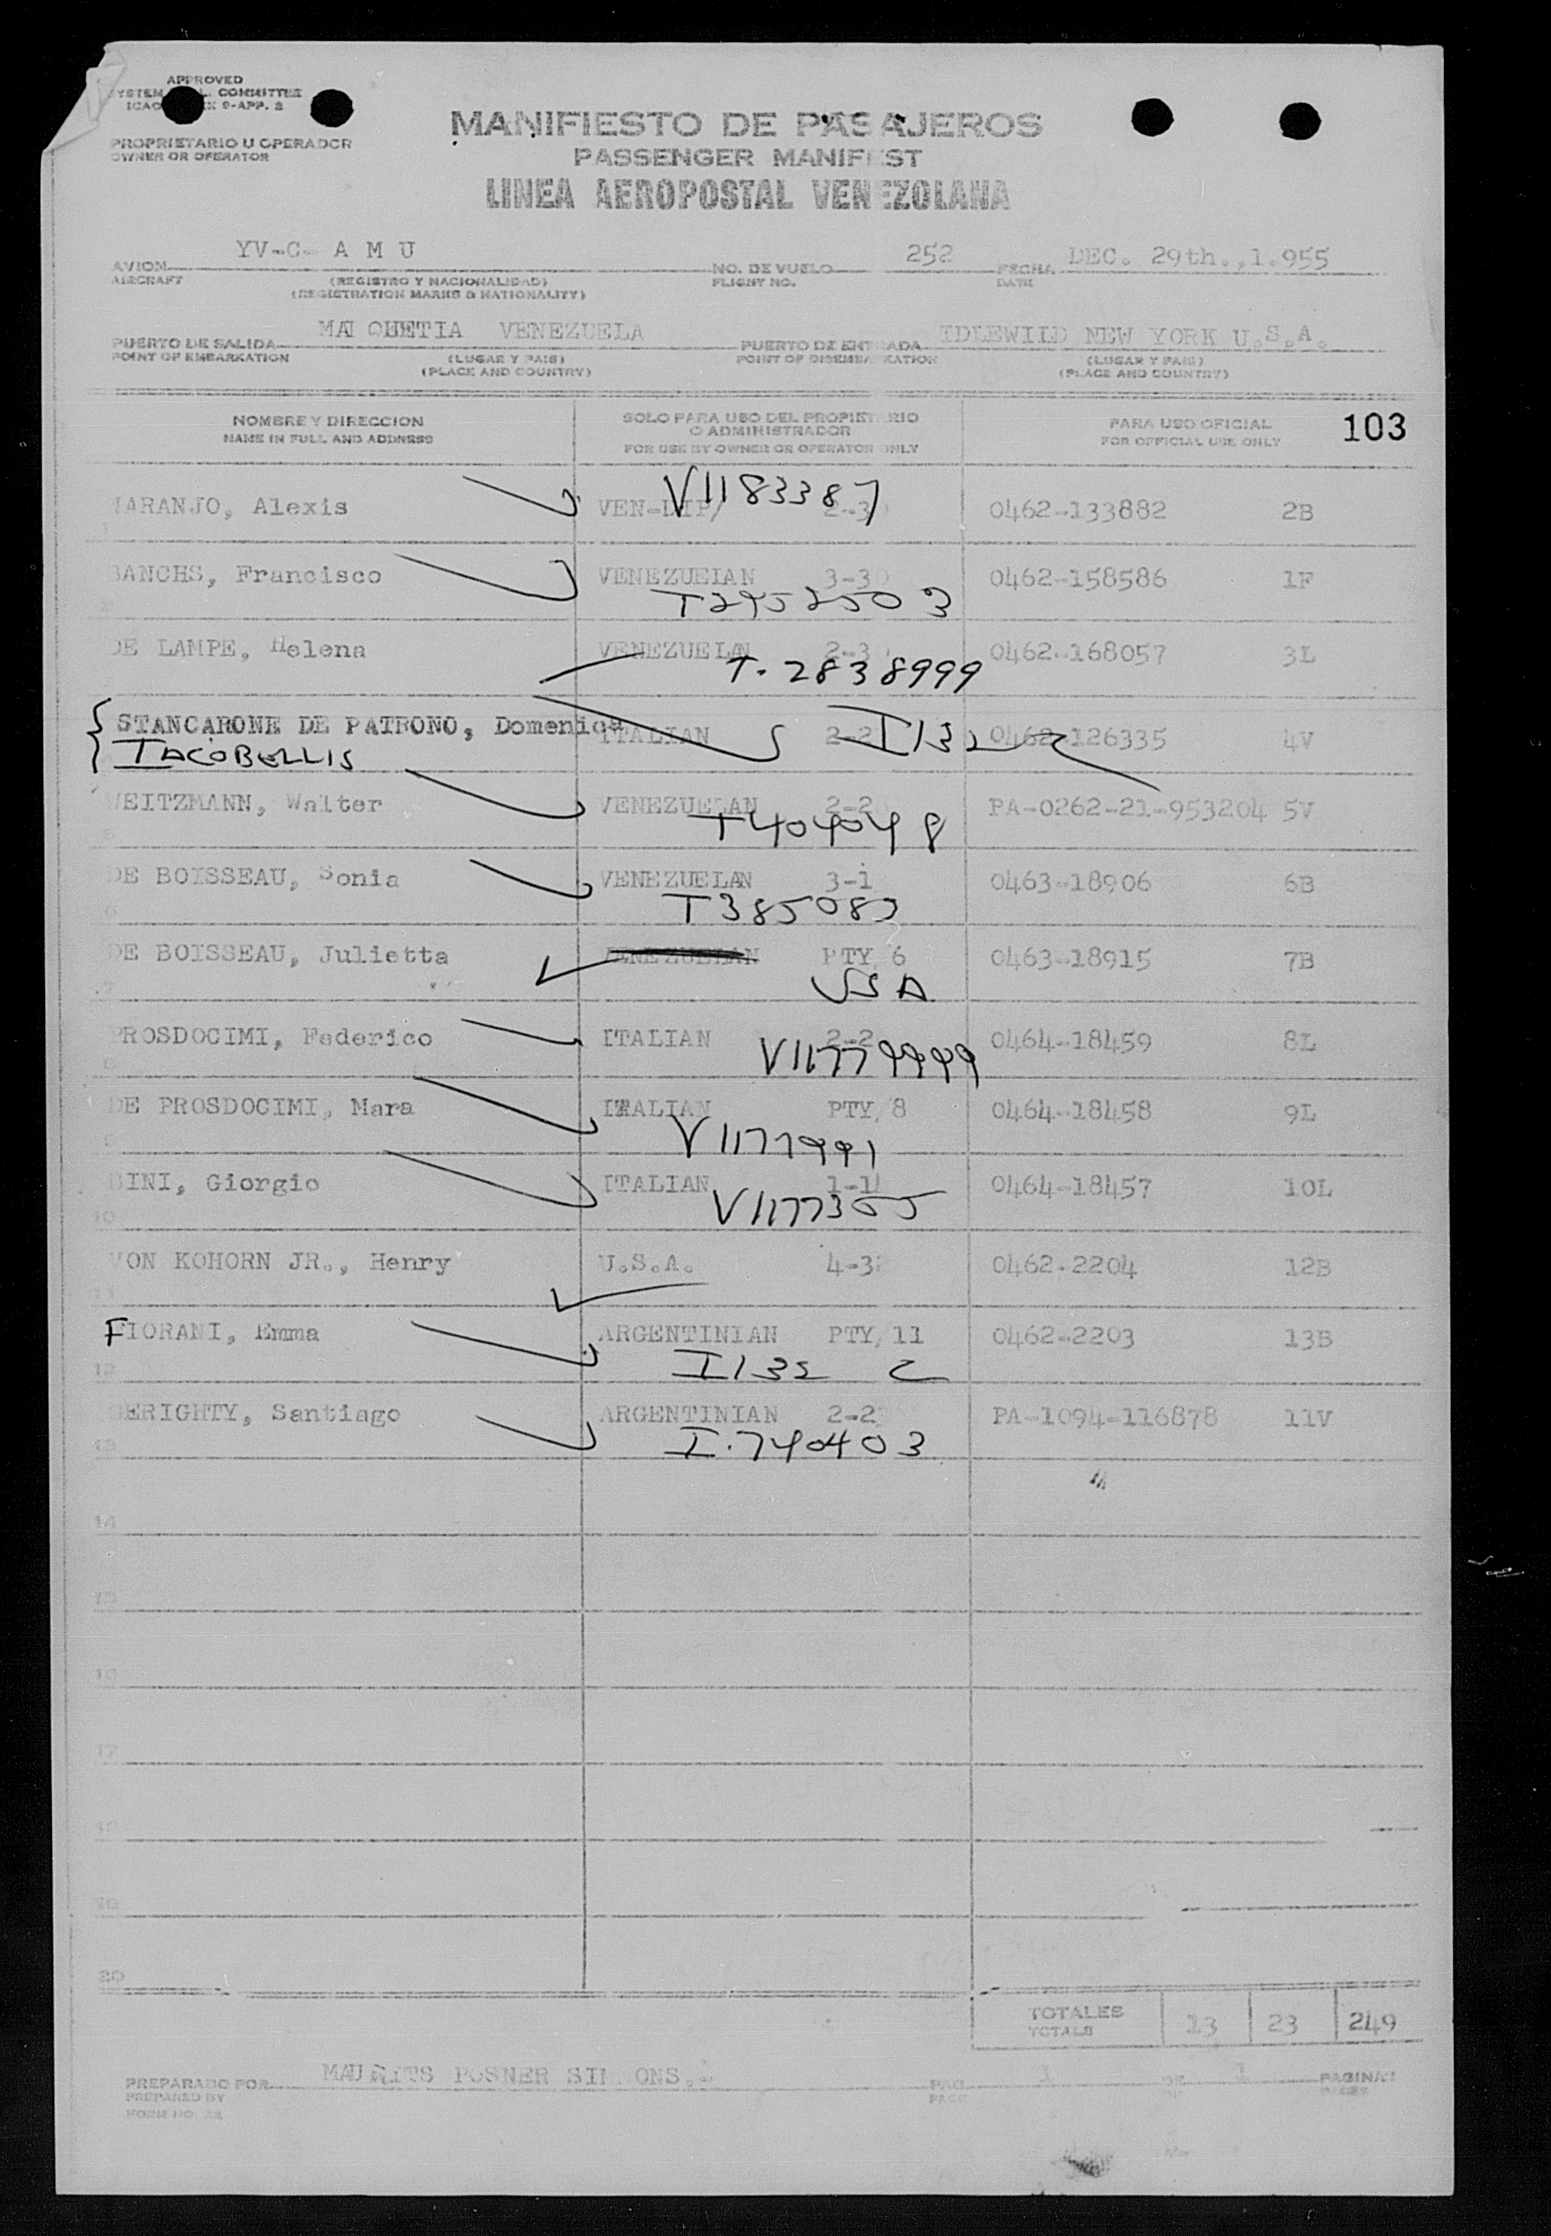 APPROVED
COMMITTEE
9-APP. 2
PROPRIETARIO U OPERADOR
OWNER OR OPERATOR
MANIFIESTO DE PASAJEROS
PASSENGER MANIFEST
LINEA AEROPOSTAL VENEZOLANA
AVION YV-C- A M U NO. DE VUELO 252 FECHA DEC. 29th.,1.955
AIRCRAFT (REGISTRO Y NACIONALIDAD) FLIGHT NO. DATE
(REGISTRATION MARKS & NATIONALITY)
PUERTO DE SALIDA MAIQUETIA VENEZUELA PUERTO DE ENTRADA IDLEWILD NEW YORK U.S.A.
POINT OF EMBARKATION (LUGAR Y PAIS) POINT OF DISEMBARKATION (LUGAR Y PAIS)
(PLACE AND COUNTRY) (PLACE AND COUNTRY)
NOMBRE Y DIRECCION SOLO PARA USO DEL PROPIETARIO PARA USO OFICIAL 103
NAME IN FULL AND ADDRESS O ADMINISTRADOR FOR OFFICIAL USE ONLY
FOR USE BY OWNER OR OPERATOR ONLY
V1183387
NARANJO, Alexis VEN-DIP/ 2-3 0462-133882 2B
BANCHS, Francisco VENEZUELAN 3-30 0462-158586 1F
T2952503
DE LAMPE, Helena VENEZUELAN 2-3 0462-168057 3L
T. 2838999
STANCARONE DE PATRONO, Domenica ITALIAN 2-2 I132 0462-126335 4V
IACOBELLIS
WEITZMANN, Walter VENEZUELAN 2-2 PA-0262-21-953204 5V
T404048
DE BOISSEAU, Sonia VENEZUELAN 3-1 0463-18906 6B
6 T385083
DE BOISSEAU, Julietta VENEZUELAN PTY/6 0463-18915 7B
7 USA
PROSDOCIMI, Federico ITALIAN 2-2 0464-18459 8L
DE PROSDOCIMI, Mara ITALIAN PTY/8 0464-18458 9L
V1177991
BINI, Giorgio ITALIAN 1-1 0464-18457 10L
10 V1177355
VON KOHORN JR., Henry U.S.A. 4-3 0462-2204 12B
11
FIORANI, Emma ARGENTINIAN PTY/11 0462-2203 13B
12 I132 C
GERIGHTY, Santiago ARGENTINIAN 2-2 PA-1094-116878 11V
13 I.740403
14
15
16
17
18
19
20
TOTALES 13 23 249
TOTALS
PREPARADO POR MAURITS POSNER SIMONS. PAG. 1 DE 1 PAGINAS
PREPARED BY PAGE PAGES
FORM NO. 22